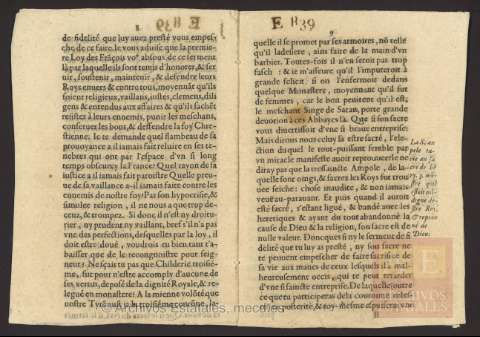 E H39
de fidelité que luy auez presté vous empes-
che de ce faire. Ie vous aduise que la premie-
re Loy des Frãçois voꝰ absous de ce sermẽt
là: par laquelle ils sont tenus d'honorer, & ser-
uir, soustenir, maintenir, & defendre leurs
Roys enuers & contre tous, moyennãt qu'ils
soient religieux, vaillans, iustes, clemens, dili
gens & entendus aux affaires & qu'ils sachẽt
resister à leurs ennemis, punir les meschans,
conseruer les bons, & deffendre la foy Chre-
stienne. Ie te demande quel flambeau de sa
preuoyance a il iamais fait reluire en ses te-
nebres qui ont par l'espace d'vn si long
temps obscurcy la France? Quel rayon de sa
iustice a il iamais fait paroistre Quelle preu-
ue de sa vaillance a-il iamais faite contre les
ennemis de nostre foy? Par son hypocrisie, &
simulee religion, il ne nous a que trop de-
ceuz, & trompez. Si donc il n'est ny droitu-
rier, ny prudent ny vaillant, bref s'il n'a pas
vne des perfections, desquelles par la loy, il
doit estre doué, voudrois tu bien tant t'a-
baisser que de le recongnoistre pour sei-
gneur? Ne sçais tu pas que Childeric troisies-
me, fut pour n'estre accomply d'aucune de
ses vertus, deposé de la dignité Royale, & re-
legué en monastere? A la mienne volõté que
vostre Tyrã
E H39
9
quelle il se promet par ses armoires, nõ telle
qu'il la desire, ains faite de la main d'vn
barbier. Toutes-fois il n'en seroit pas trop
fasché : & ie m'asseure qu'il l'imputeroit à
grande felicité. si on l'enfermoit dedans
quelque Monastere, moyennant qu'il fut
de femmes, car le bon penitent qu'il est,
le meschant Singe de Satan, porte grande
deuotion à ces Abbayes là. Que si son sacre
vous diuertissoit d'vne si braue entreprise:
Mais dirons nous celuy là estre sacré, l'ele-
ction duquel le tout-puissant semble par
vn miracle manifeste auoir reprouuee ne
voulant pas que la treffainte Ampole, de la-
quelle sont oingts, & sacrez les Roys fut trou
uee seiche: chose inaudite, & non iamais
auenuë au-parauant. Et puis quand il auroit
esté sacré, s'estant ligué, & bandé auec les
heretiques & ayant du tout abandonné la
cause de Dieu & la religion, son sacre est de
nulle valeur. Doncques si ny le serment de fi
delité que tu luy as presté, ny son sacre ne
te peuuent empescher de faire sacrifice de
sa vie aux manes de ceux lesquels il a mal-
heureusement occis, qui te peut retarder
d'vne si saincte entreprise. De laquelle outre
de Dieu.
E
ARCHIVOS
ESTATALES
© Archivos Estatales, mecd.es